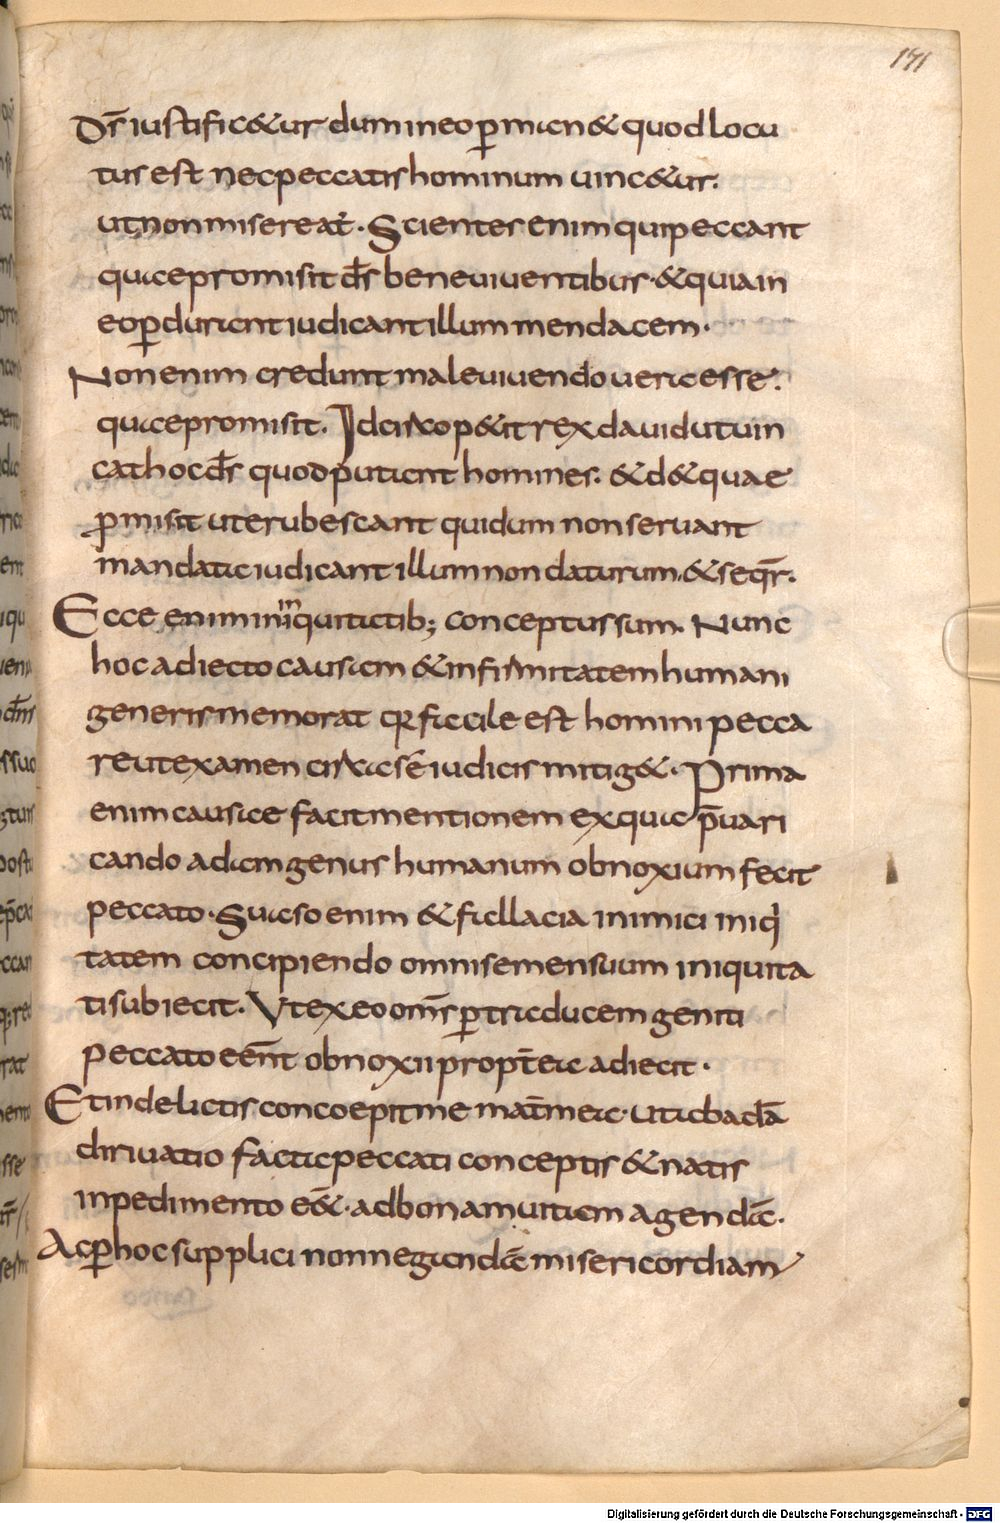 171
Dꝯ iustificetur dum in eo ꝑmanet quod locu
tus est nec peccatis hominum uincetur.
ut non misereat̄. Scienter enim qui peccant
quae promisit d̄s bene uiuentibus. & quia in
eo ꝑdurant iudicant illum mendacem.
Non enim credunt male uiuendo uera esse.
quae promisit. Idcirco petit rex dauid ut uin
cat hoc d̄s quod putant homines. & det quae
ꝓmisit ut erubescant qui dum non seruant
mandata iudicant illum non daturum. & seqr̄.
Ecce enim in iniquitatib; conceptus sum. Nunc
hoc adiecto causam & infirmitatem humani
generis memorat qꝛ facile est homini pecca
re ut examen circa sē iudicis mitiget. Prima
enim causae facit mentionem ex qua p̄uari
cando adam genus humanum obnoxium fecit
peccato. Suaso enim & fallacia inimici iniq
tatem concipiendo omne semen suum iniquita
ti subiecit. Ut ex eo om̄s ꝑ traducem geniti
peccato eēnt obnoxii propt̄ea adiecit.
Et in delictis concoepit me mat̄ mea. ut ab adā
diriuatio facta peccati conceptis & natis
inpedimento eēt. ad bonam uitam agendā.
Ac ꝑ hoc supplici non negandā misericordiam
Digitalisierung gefördert durch die Deutsche Forschungsgemeinschaft - DFG